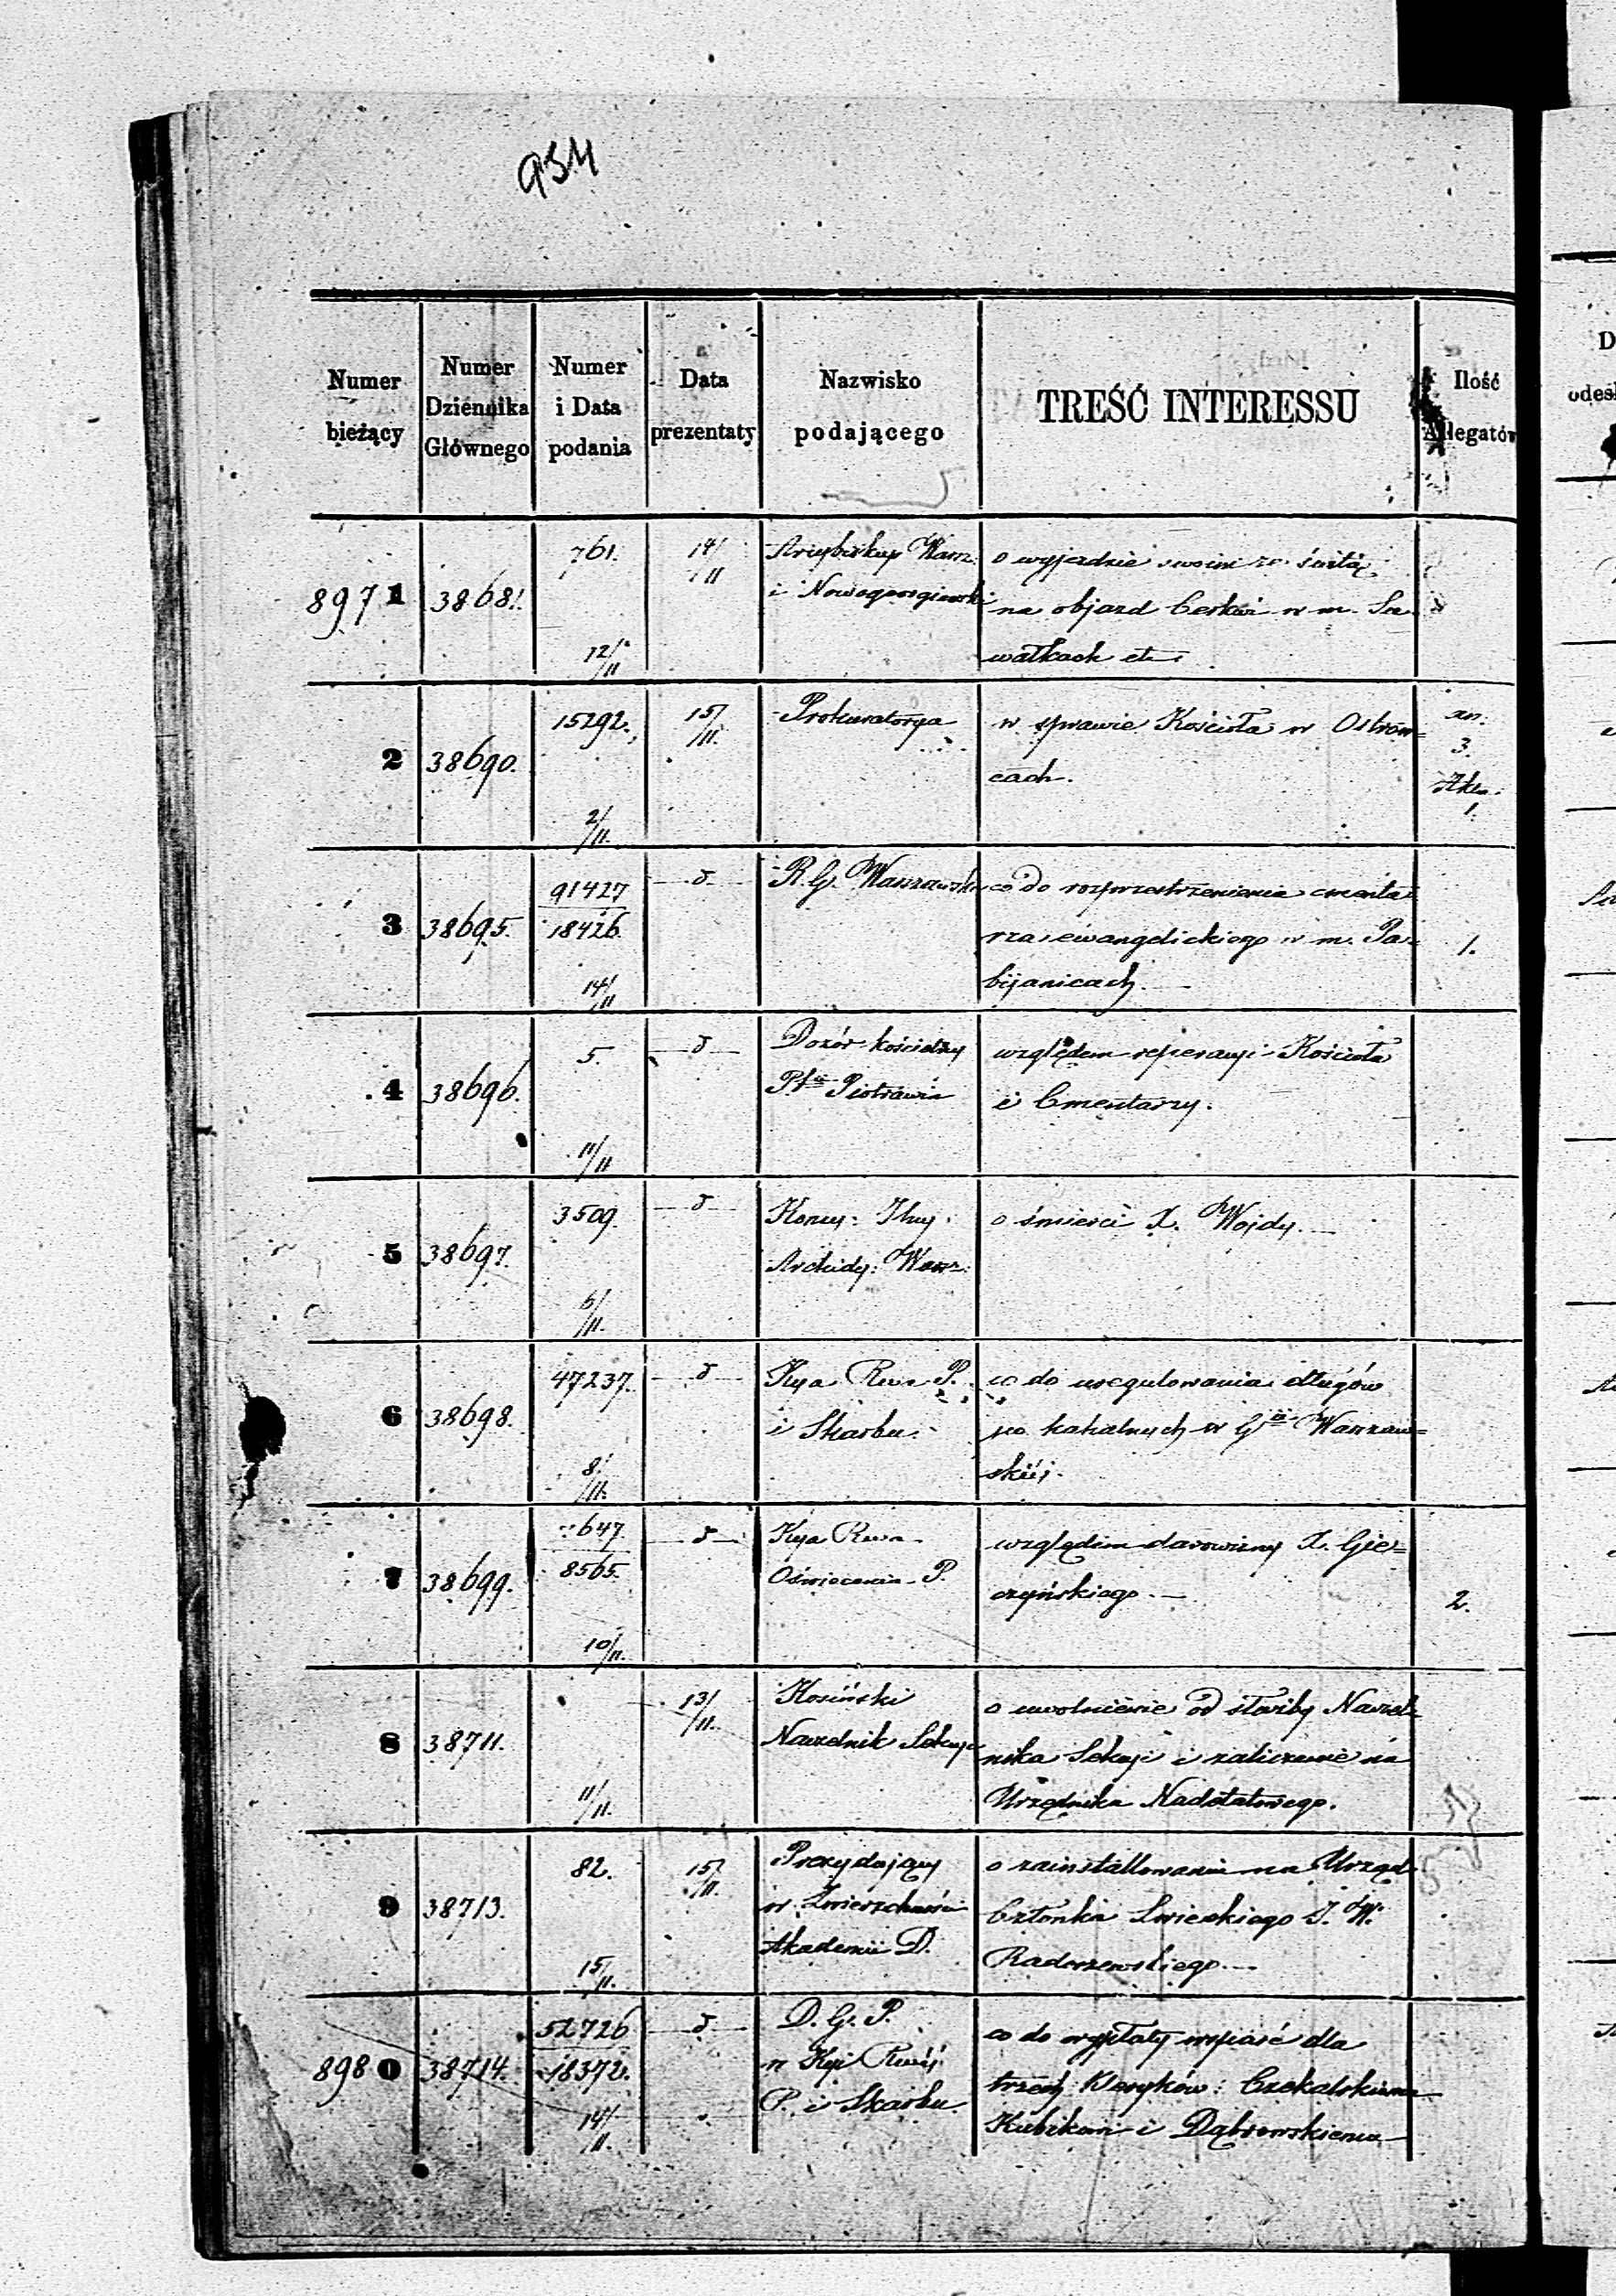 934
Numer bieżący
Numer Dziennika Głównego
Numer i Data podania
Data prezentaty
Nazwisko podającego
TREŚĆ INTERESSU
Ilość Allegatów
8971 38681. 761. 12/11 14/11
Arcybiskup Warsz:
i Nowogeorgiewski
o wyjeździe swoim ze świtą
na objazd Cerkwi w m. Su
wałkach etc.
2 38690. 15292. 2/11. 15/11.
Prokuratorya
w sprawie Kościoła w Ostrow=
cach.
3.
Akta.
1.
3 38695. 91427 18426. 14/11 d
R. G. Warszawski
co do rozprzestrzenienia cmenta
rza ewangelickiego w m. Pa=
bijanicach.
1.
4 38696. 5. 11/11 d
Dozór kościelny
Pfii Piotrawin
względem reperacyi Kościoła
i Cmentarzy.
5 38697. 3509. 6/11. d
Konsy:
Archidy: Warsz:
o śmierci X. Wojdy.
6 38698. 47237. 8/11. d
Kya Rwa P.
i Skarbu.
co do uregulowania długów
po kahalnych w Gii Warszaw=
skiéj.
7 38699. 647. 8565. 10/11. d
Kya Rwa
Oświecenia P.
względem darowizny X. Gie=
czyńskiego.
2.
8 38711. 11/11. 13/11.
Kosiński
Naczelnik Sekcyi
o uwolnienie od służby Naczel=
nika Sekcyi i zaliczenie na
Urzędnika Nadetatowego.
9 38713. 82. 15/11. 15/11.
Prezydający
w Zwierzchności
Akademii D.
o zainstallowaniu na Urząd
Członka Świeckiego J. W.
Radoszewskiego.
8980 38714. 52726 18372. 14/11. d
D. G. P.
w Kyi Rwéj
P. i Skarbu.
co do wypłaty wsparć dla
trzech Kleryków: Czekalskiemu
Kubikowi i Dąbrowskiemu
D
odesł